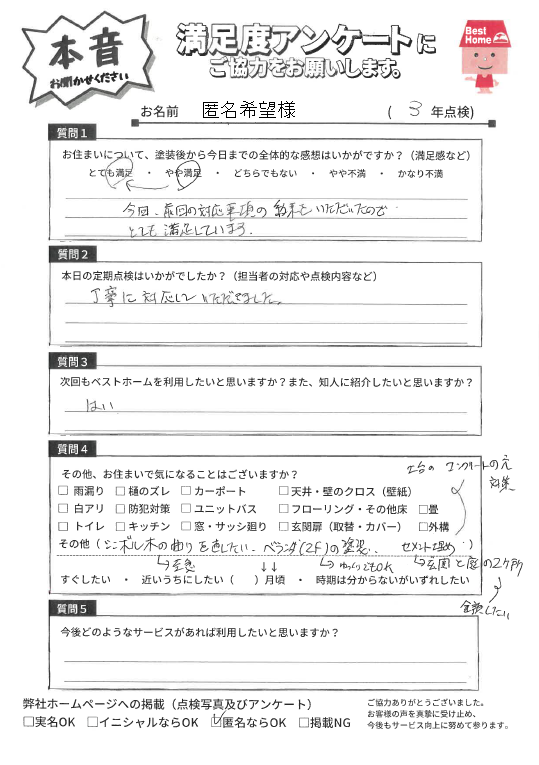 本音
お聞かせください
満足度アンケートに
ご協力をお願いします。
Best
Home
お名前 匿名希望様 ( 3 年点検)
質問1
お住まいについて、塗装後から今日までの全体的な感想はいかがですか？（満足感など）
とても満足 ・ やや満足 ・ どちらでもない ・ やや不満 ・ かなり不満
今回、前回の対応事項の結果をいただいたので
とても満足しています。
質問2
本日の定期点検はいかがでしたか？（担当者の対応や点検内容など）
丁寧に対応していただきました。
質問3
次回もベストホームを利用したいと思いますか？また、知人に紹介したいと思いますか？
はい
質問4
土台のコンクリートの穴
対策
その他、お住まいで気になることはございますか？
□ 雨漏り □ 樋のズレ □ カーポート □ 天井・壁のクロス（壁紙）
□ 白アリ □ 防犯対策 □ ユニットバス □ フローリング・その他床 □ 畳
□ トイレ □ キッチン □ 窓・サッシ廻り □ 玄関扉（取替・カバー） □ 外構
その他（シンボル木の曲りを直したい、ベランダ(2F)の塗装、 セメント埋め ）
↳至急 ↓↓ ↳ゆっくりでもOK ↳玄関と庭の2ヶ所
すぐしたい ・ 近いうちにしたい（ ）月頃 ・ 時期は分からないがいずれしたい
質問5
今後どのようなサービスがあれば利用したいと思いますか？
弊社ホームページへの掲載（点検写真及びアンケート）
□実名OK □イニシャルならOK ☑匿名ならOK □掲載NG
ご協力ありがとうございました。
お客様の声を真摯に受け止め、
今後もサービス向上に努めて参ります。